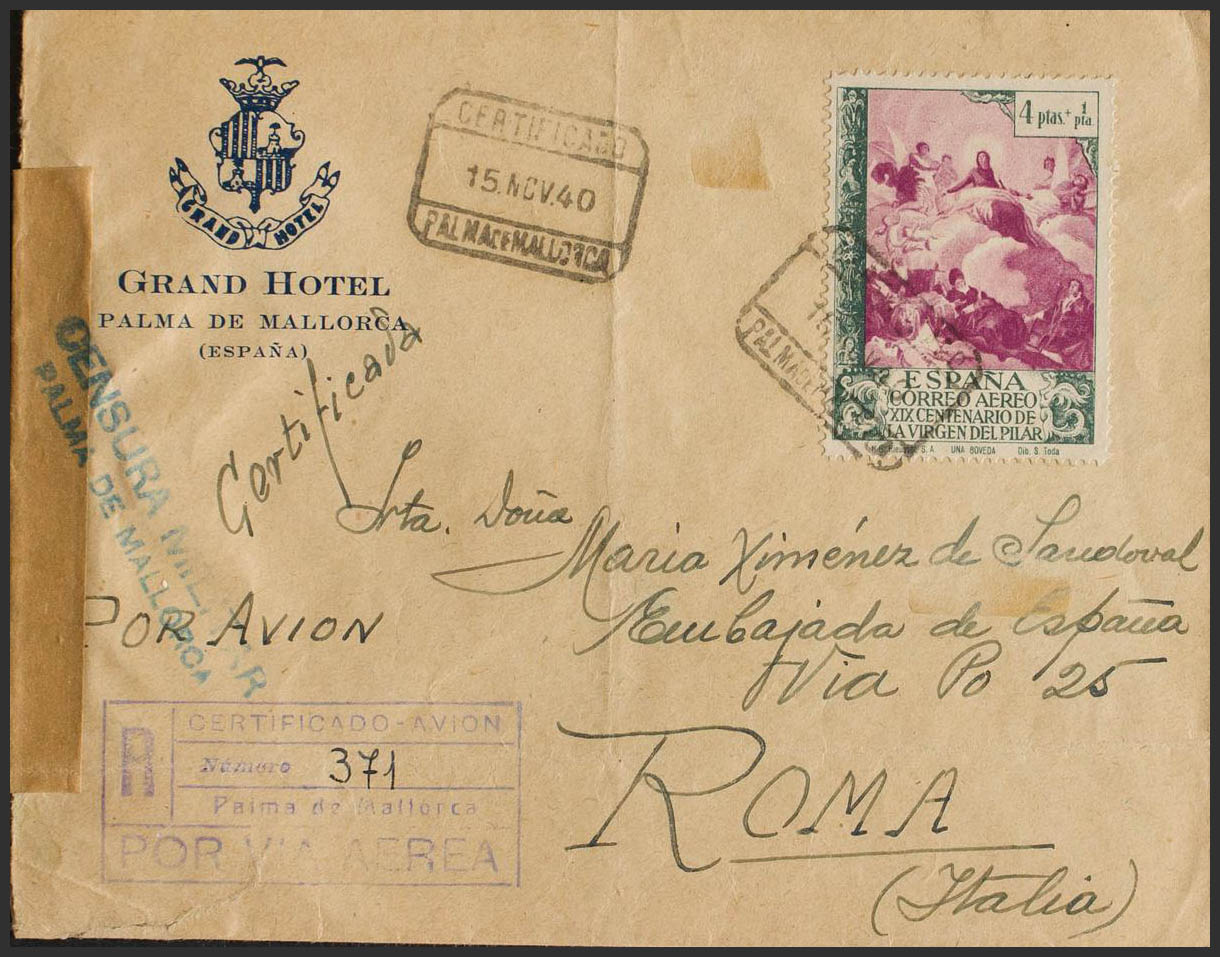 GRAND HOTEL
GRAND HOTEL
PALMA DE MALLORCA
(ESPAÑA)
CERTIFICADO
15.NOV.40
PALMA DE MALLORCA
4 ptas.+ 1 pta.
ESPAÑA
CORREO AEREO
XIX CENTENARIO DE
LA VIRGEN DEL PILAR
S. A UNA BOVEDA Dib. S. Toda
15
PALMA DE
CENSURA MILITAR
PALMA DE MALLORCA
Certificada
Srta. Doña
Maria Ximénez de Sandoval
Embajada de España
Via Po 25
ROMA
(Italia)
POR AVION
R
CERTIFICADO-AVION
Número 371
Palma de Mallorca
POR VIA AEREA